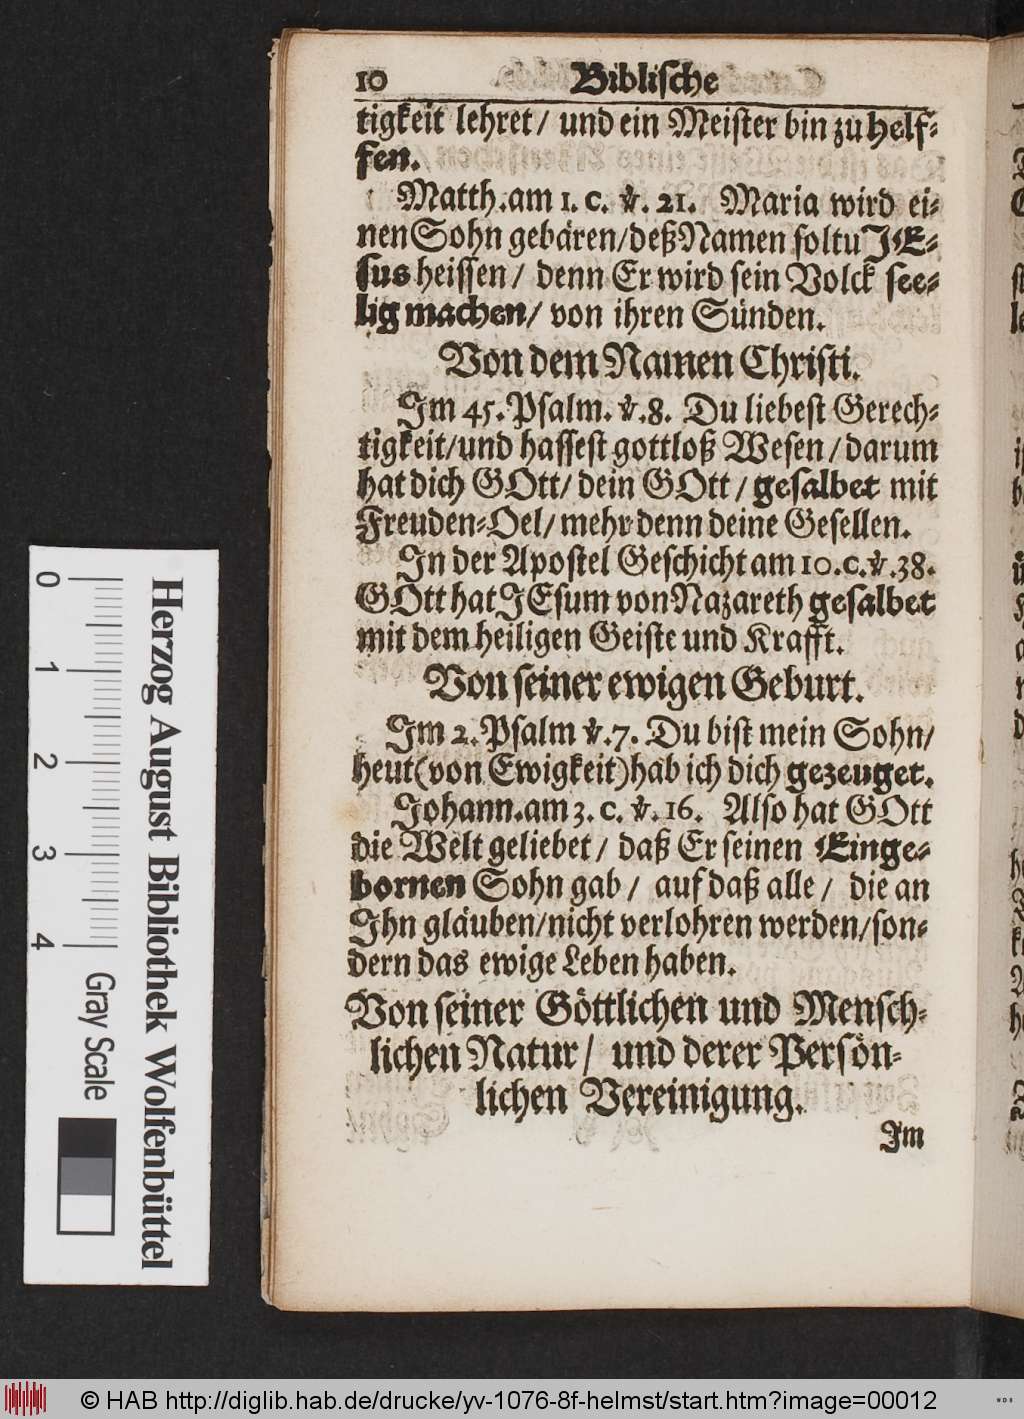 10 Biblische
tigkeit lehret/ und ein Meister bin zu helf-
fen.
Matth. am 1. C. ℣. 21. Maria wird ei-
nen Sohn gebären/ deß Namen soltu JE-
sus heissen/ denn Er wird sein Volck see-
lig machen/ von ihren Sünden.
Von dem Namen Christi.
Im 45. Psalm. ℣. 8. Du liebest Gerech-
tigkeit/ und hassest gottloß Wesen/ darum
hat dich GOtt/ dein GOtt/ gesalbet mit
Freuden-Oel/ mehr denn deine Gesellen.
In der Apostel Geschicht am 10. C. ℣. 38.
GOtt hat JEsum von Nazareth gesalbet
mit dem heiligen Geiste und Krafft.
Von seiner ewigen Geburt.
Im 2. Psalm ℣. 7. Du bist mein Sohn/
heut (von Ewigkeit) hab ich dich gezeuget.
Johann. am 3. C. ℣. 16. Also hat GOtt
die Welt geliebet/ daß Er seinen Einge-
bornen Sohn gab/ auf daß alle/ die an
Ihn gläuben/ nicht verlohren werden/ son-
dern das ewige Leben haben.
Von seiner Göttlichen und Mensch-
lichen Natur/ und derer Persön-
lichen Vereinigung.
Im
0 1 2 3 4
Gray Scale
Herzog August Bibliothek Wolfenbüttel
© HAB http://diglib.hab.de/drucke/yv-1076-8f-helmst/start.htm?image=00012